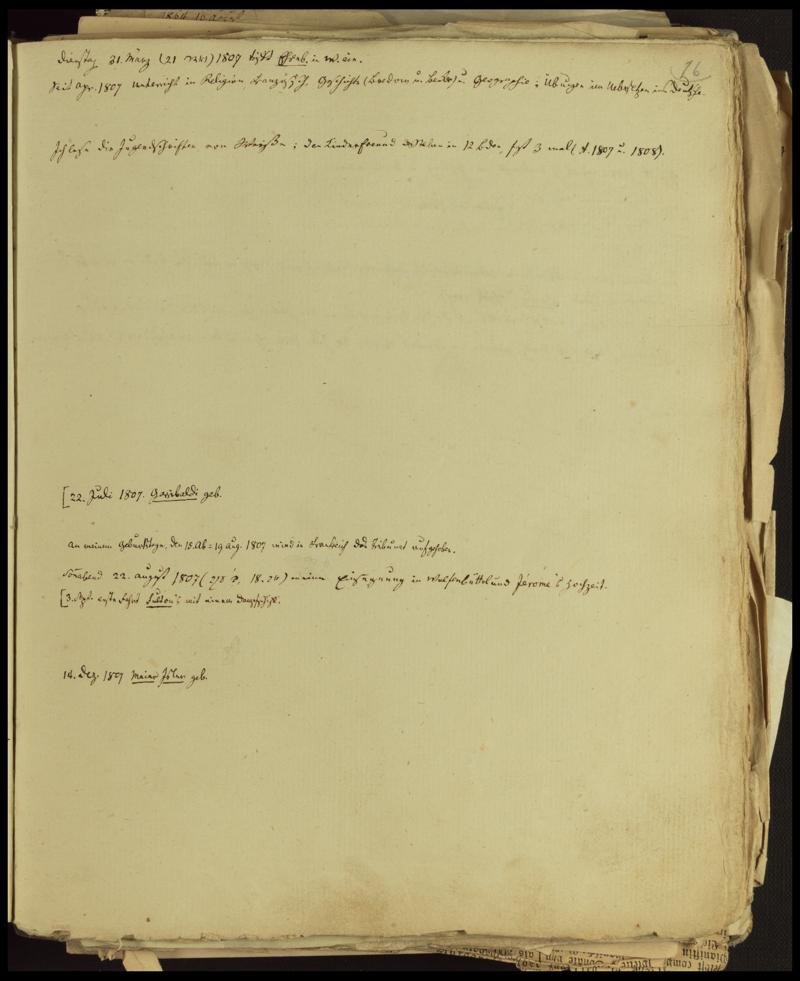 16
Dienstag 31. März (21 ) 1807 tritt Ehrenb. in W. ein.
Seit Apr. 1807 Unterricht in Religion, Französisch, Geschichte (Bredow u. Becker) u. Geographie; Übungen im Uebersetzen ins Deutsche.
Ich lese die Jugendschriften von Weiße; den Kinderfreund desselben in 12 Bden, fast 3 mal (A. 1807 u. 1808).
[22. Juli 1807. Garibaldi geb.
An meinem Geburtstage, den 15. Ab = 19 Aug. 1807 wird in Frankreich das Tribunat aufgehoben.
Sonnabend 22. August 1807 ( 18. ) meine Einsegnung in Wolfenbüttel und Jérôme's Hochzeit.
[3. Sept. erste Fahrt Fulton's mit einem Dampfschiff.
14. Dez. 1807 Meier Isler geb.